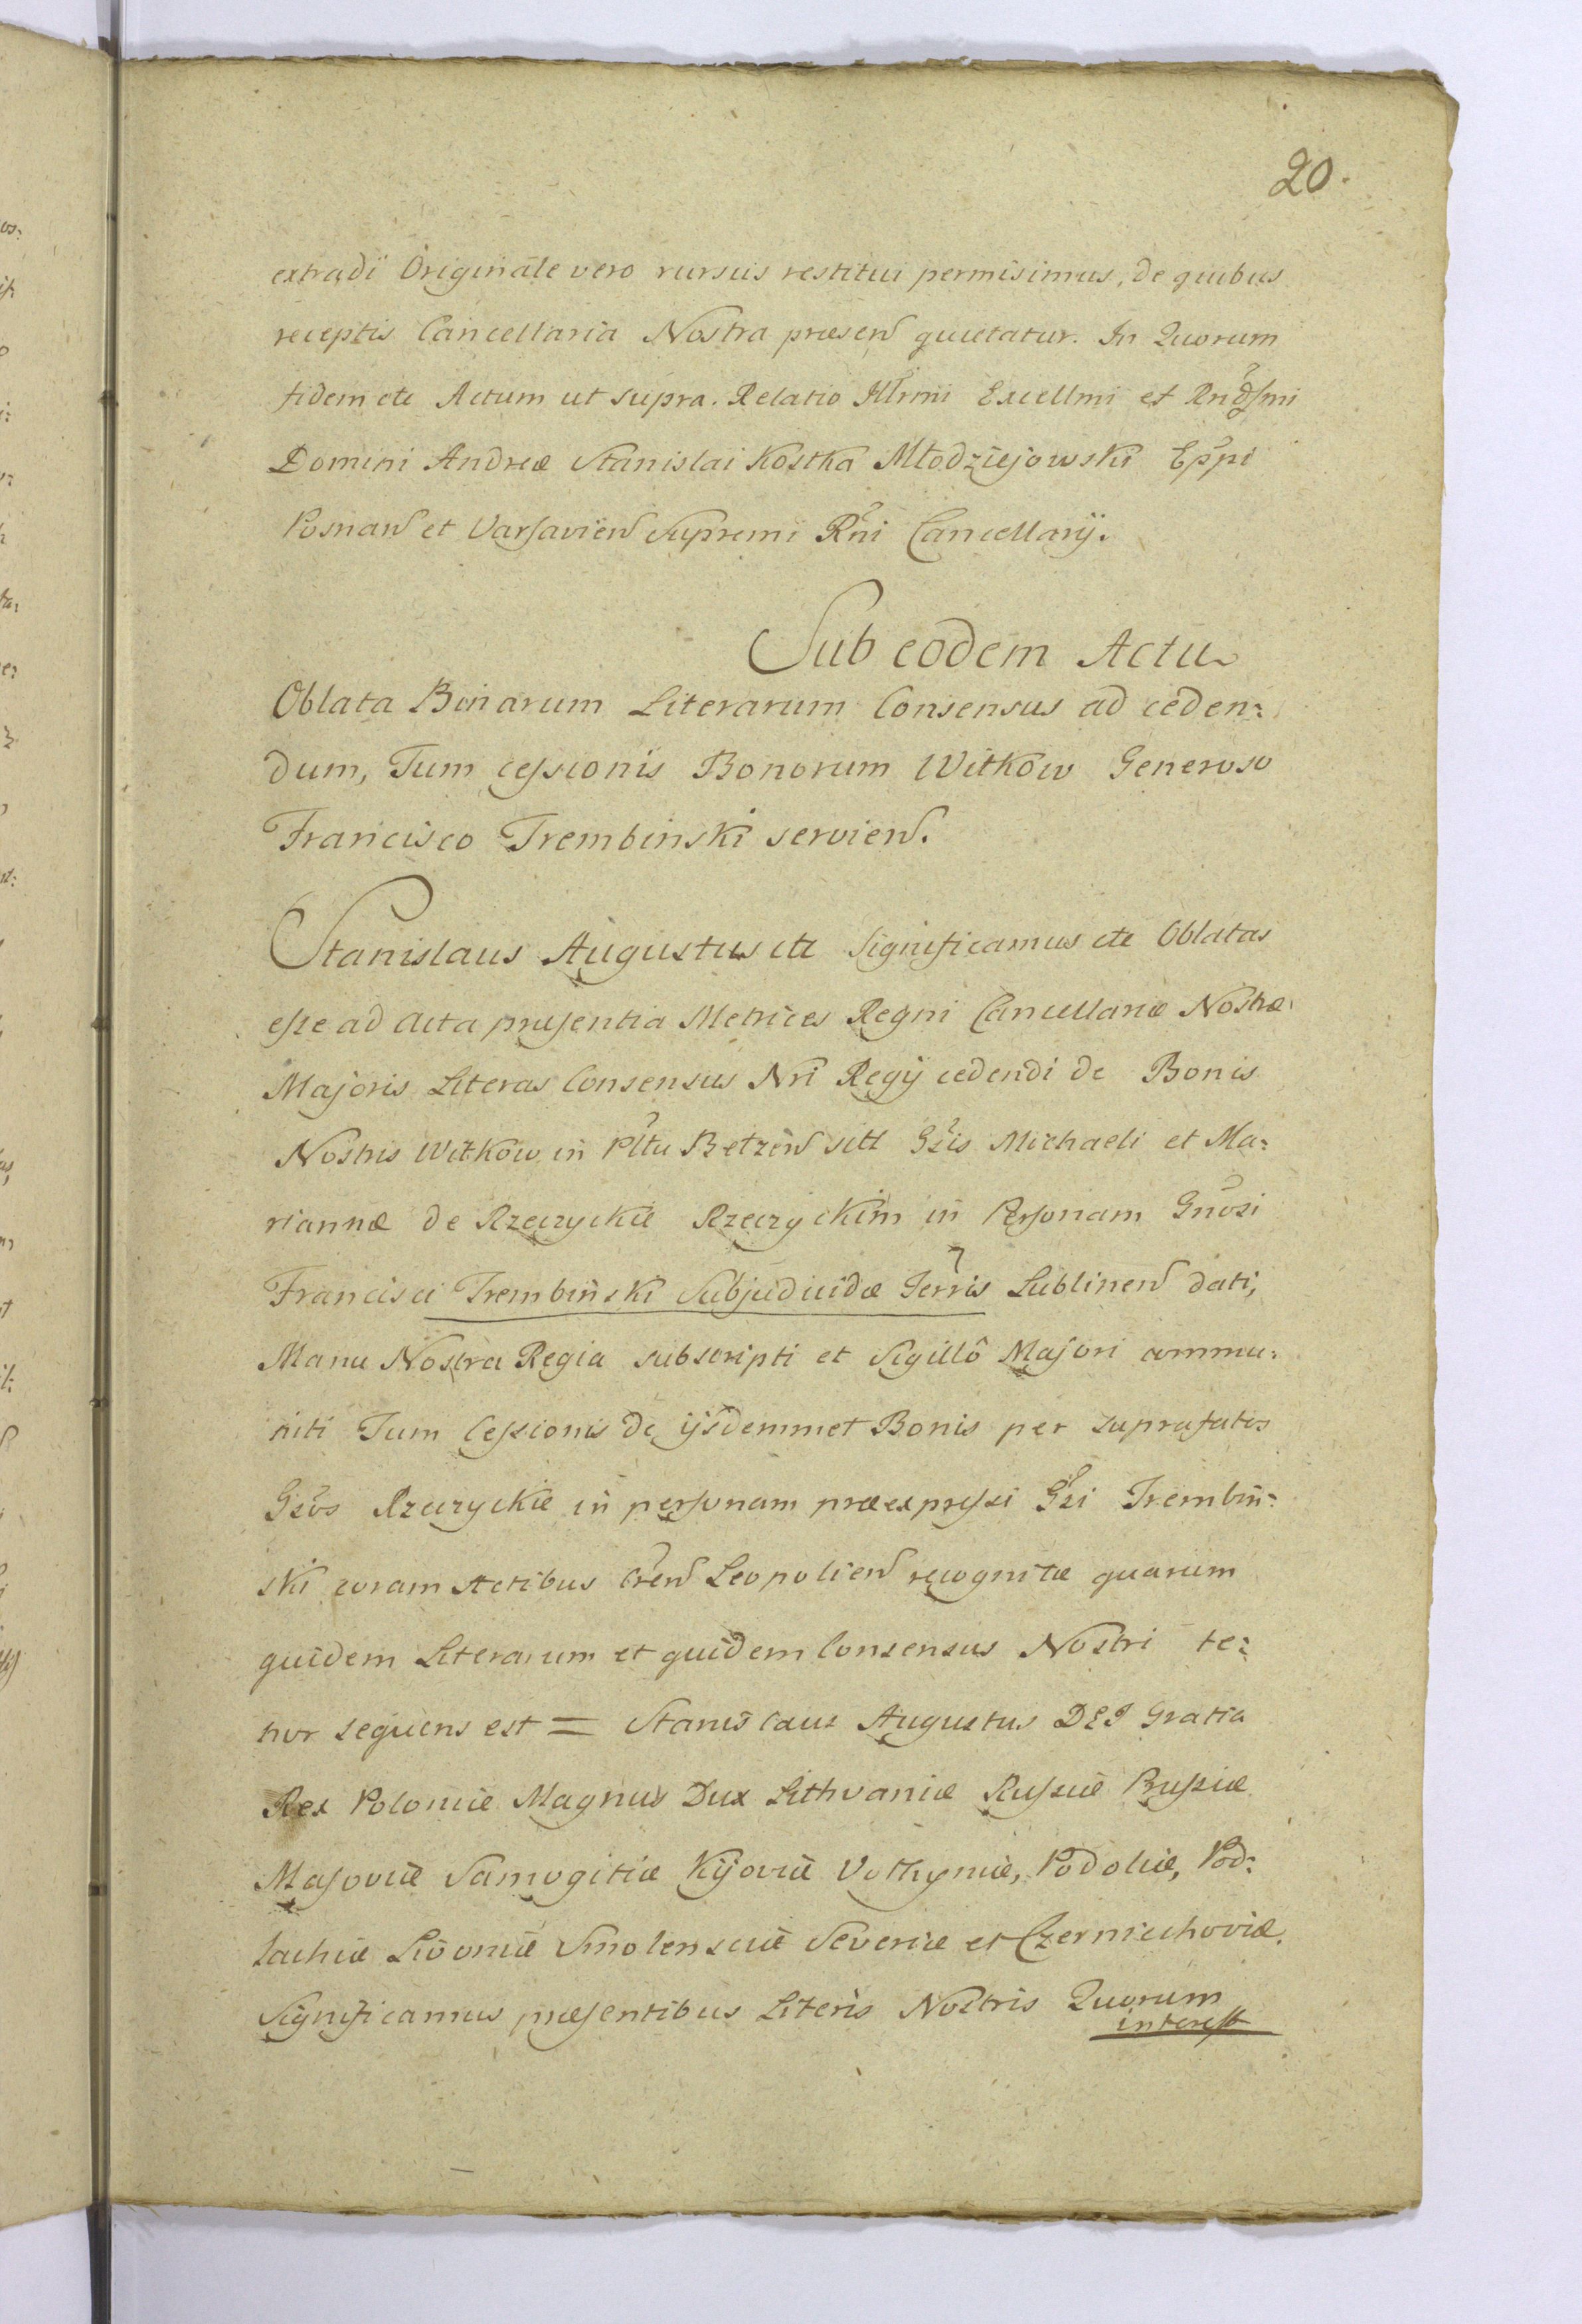 20.
extradi Originale vero rursus restitui permisimus, de quibus
receptis Cancellaria Nostra præsen quietatur. In Quorum
fidem etc Actum ut supra. Relatio Illrmi Excellmi et Rndsmi
Domini Andreæ Stanislai Kostka Młodziejowski Eppi
Posnan et Varsavien Supremi Rni Cancellarij.
Sub eodem Actu
Oblata Binarum Literarum Consensus ad ceden:
dum, Tum cessionis Bonorum Witkow Generoso
Francisco Trembinski servien.
Stanislaus Augustus etc Significamus etc Oblatas
esse ad Acta præsentia Metrices Regni Cancellariæ Nostræ
Majoris Literas Consensus Nri Regij cedendi de Bonis
Nostris Witkow in Pltu Betzen sitt Gsis Michaeli et Ma:
riannæ de Rzeczyckie Rzeczyckim in Personam Gnosi
Francisci Trembinski Subjudicidæ Terris Lublinen dati,
Manu Nostra Regia subscripti et Sigillô Majori commu:
niti Tum Cessionis de ijsdemmet Bonis per suprafatos
Gsos Rzeczyckie in personam præexpressi Gsi Trembin:
ski coram Actibus Cren Leopolien recognitæ quarum
quidem Literarum et quidem Consensus Nostri te:
nor sequens est = Stanislaus Augustus DEI Gratia
Rex Poloniæ Magnus Dux Lithvaniæ Russiæ Prussiæ
Masoviæ Samogitiæ Kijoviæ Volhyniæ, Podoliæ, Pod:
lachiæ Livoniæ Smolensciæ Severiæ et Czerniechoviæ.
Significamus præsentibus Literis Nostris Quorum
interest